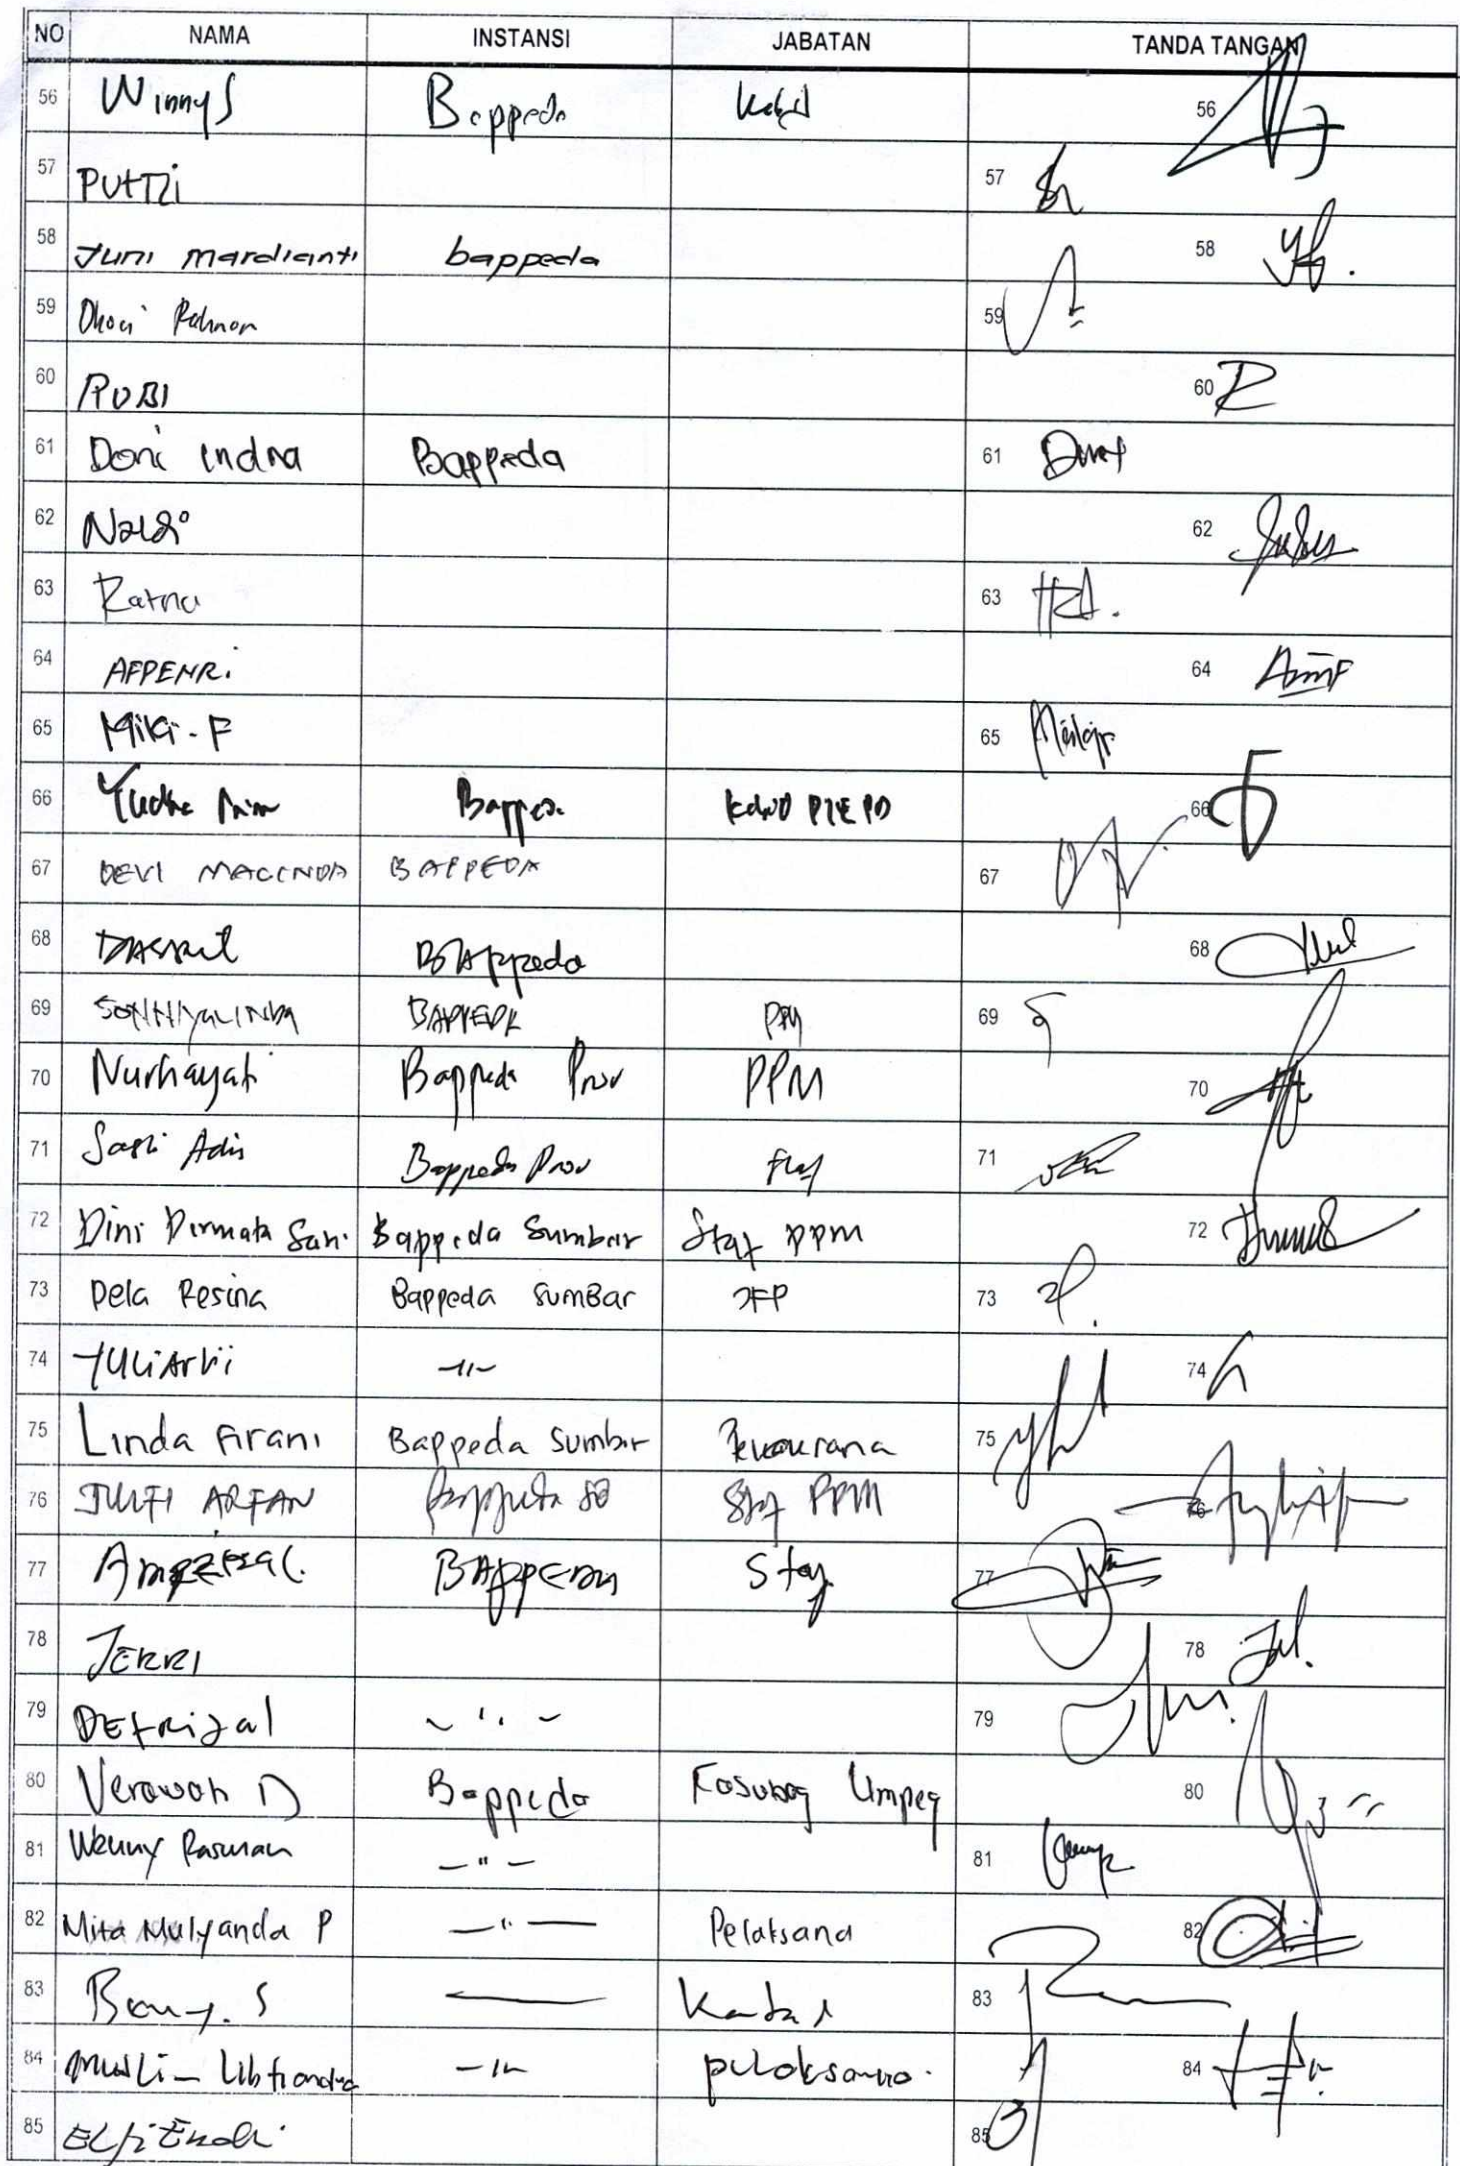 NO NAMA INSTANSI JABATAN TANDA TANGAN
56 Winny S Bappeda Kabid 56
57 PUTTRi 57
58 Juni mardianti bappeda 58
59 Rahman 59
60 RUBI 60
61 Doni indra Bappeda 61
62 Naldi 62
63 Ratna 63
64 AFPENRi 64
65 Miki. F 65
66 Yudha Bappeda 66
67 DEVI BAPPEDA 67
68 BAppeda 68
69 BAPPEDA PPM 69
70 Nurhayati Bappeda Prov PPM 70
71 Adis Bappeda Prov 71
72 Dini Permata Sari Bappeda Sumbar Staf PPM 72
73 Dela Resina Bappeda SumBar JFP 73
74 YULiArVi -11- 74
75 Linda Firani Bappeda Sumbar 75
76 JULFI ARFAN Bappeda SB Staf PPM 76
77 BAPPEDA Staf 77
78 JERRI 78
79 DEFRizal ~ '' ~ 79
80 Verawati D Bappeda Kasubag Umpeg 80
81 Wenny Rasman - " - 81
82 Mita Mulyanda P - " - Pelaksana 82
83 Beny. S Kabid 83
84 -11- pelaksana. 84
85 85